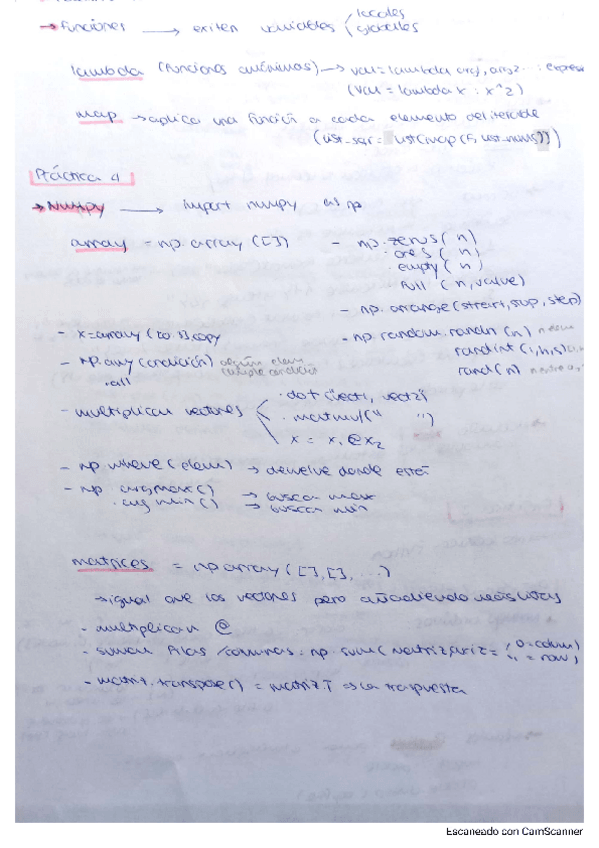 → funciones → existen variables < locales
globales
lambda (funciones anónimas) → val = lambda arg1, arg2... : expresi
(val = lambda x : x^2)
map → aplica una función a cada elemento del iterable
(list_sqr = list(map(f, list_nums)))
Práctica 4
→ Numpy → import numpy as np
array = np.array([])
- np.zeros(n)
· ones(n)
· empty(n)
full(n, value)
- np.arrange(start, stop, step)
- x = array([...]).copy
- np.random.randn(n)
randint(
rand(n)
- np.any(condición) algún elem
.all cumple condición
- multiplicar vectores < · dot(vect1, vect2)
· matmul(" ")
x = x1@x2
- np where(elem) → devuelve donde está
- np. argmax() → buscan max
· argmin() → buscan min
matrices = np array([],[],...)
→ igual que los vectores pero añadiendo más listas
- multiplican @
- suman filas/columnas: np.sum(matriz, axis = 0=colum)
" = row)
- matriz.transpose() = matriz.T → la traspuesta
Escaneado con CamScanner